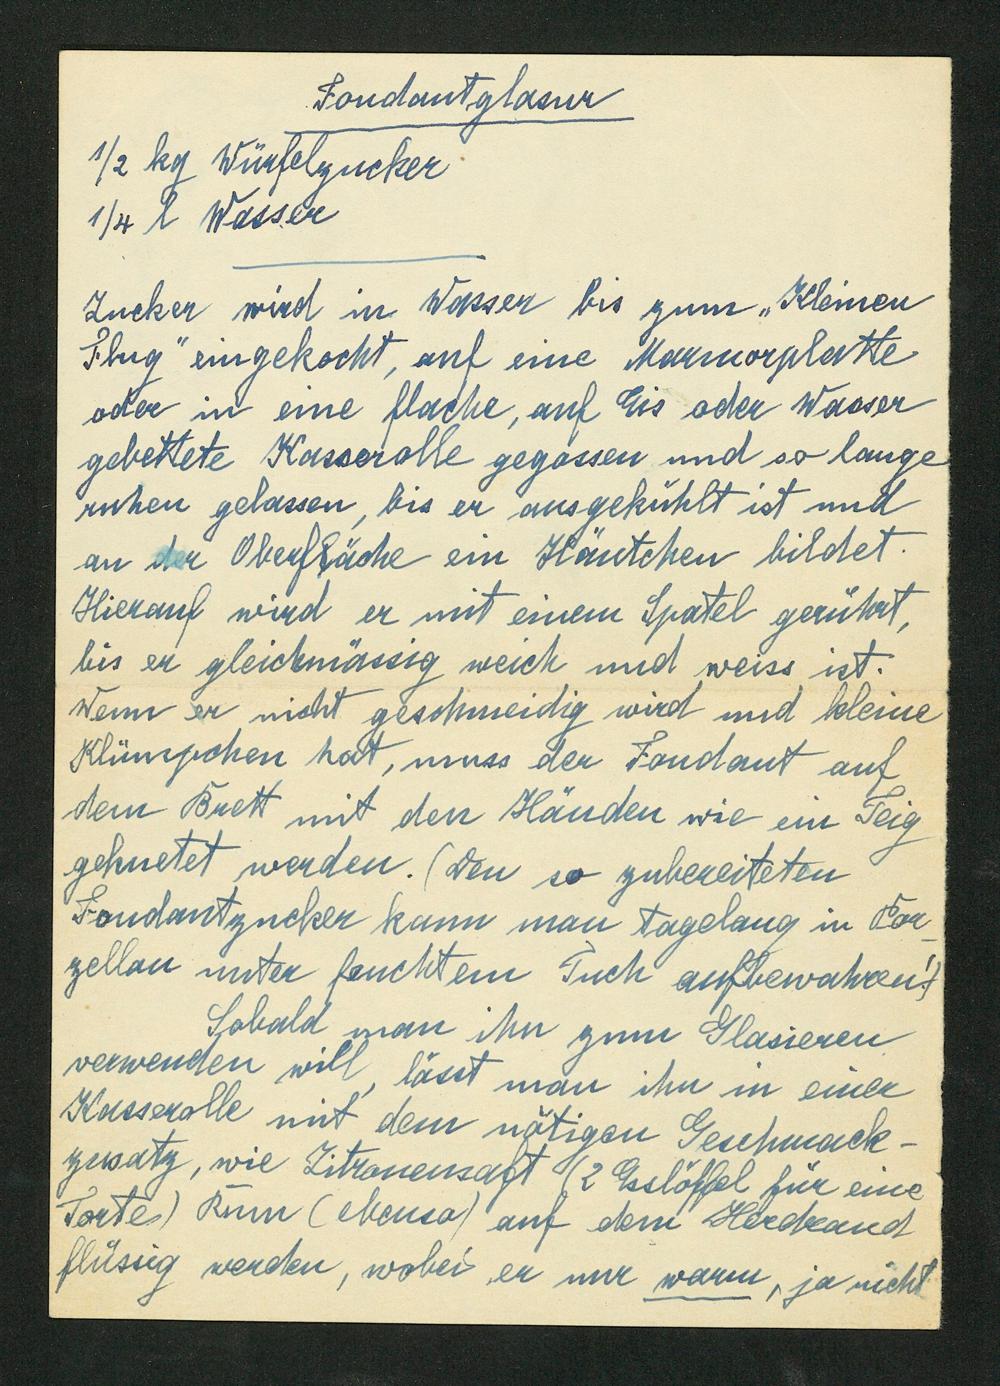 Fondantglasur
1/2 kg Würfelzucker
1/4 l Wasser
Zucker wird in Wasser bis zum „Kleinen
Flug" eingekocht, auf eine Marmorplatte
oder in eine flache, auf Eis oder Wasser
gebettete Kasserolle gegossen und so lange
ruhen gelassen, bis er ausgekühlt ist und
an der Oberfläche ein Häutchen bildet.
Hierauf wird er mit einem Spatel gerührt,
bis er gleichmässig weich und weiss ist.
Wenn er nicht geschmeidig wird und kleine
Klümpchen hat, muss der Fondant auf
dem Brett mit den Händen wie ein Teig
geknetet werden. (Den so zubereiteten
Fondantzucker kann man tagelang in Por-
zellan unter feuchtem Tuch aufbewahren!)
Sobald man ihn zum Glasieren
verwenden will, lässt man ihn in einer
Kasserolle mit dem nötigen Geschmack-
zusatz, wie Zitronensaft (2 Esslöffel für eine
Torte) Rum (ebenso) auf dem Herdrand
flüssig werden, wobei er nur warm, ja nicht